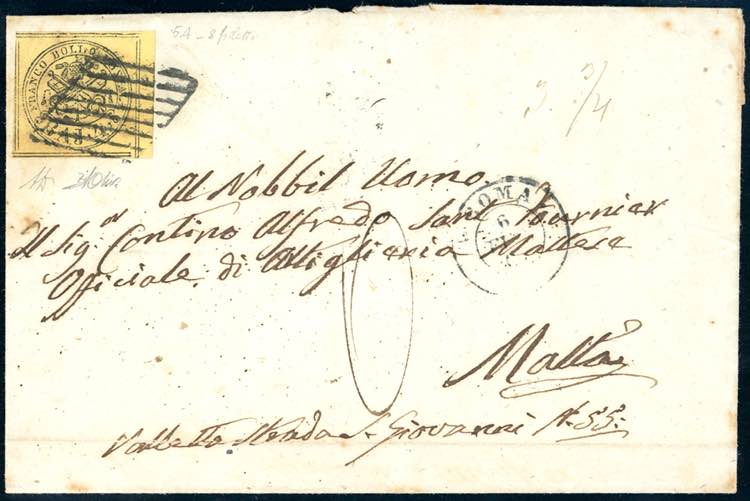 FRANCO BOLLO POSTALE
BAJ. 4
5A
3 3/4
Al Nobbil Uomo
Il Sig.or Contino Alfredo Sant Fournier
Officiale di Attiglieria Maltese
ROMA
6
Malta
Valletta Strada S. Giovanni N. 55: